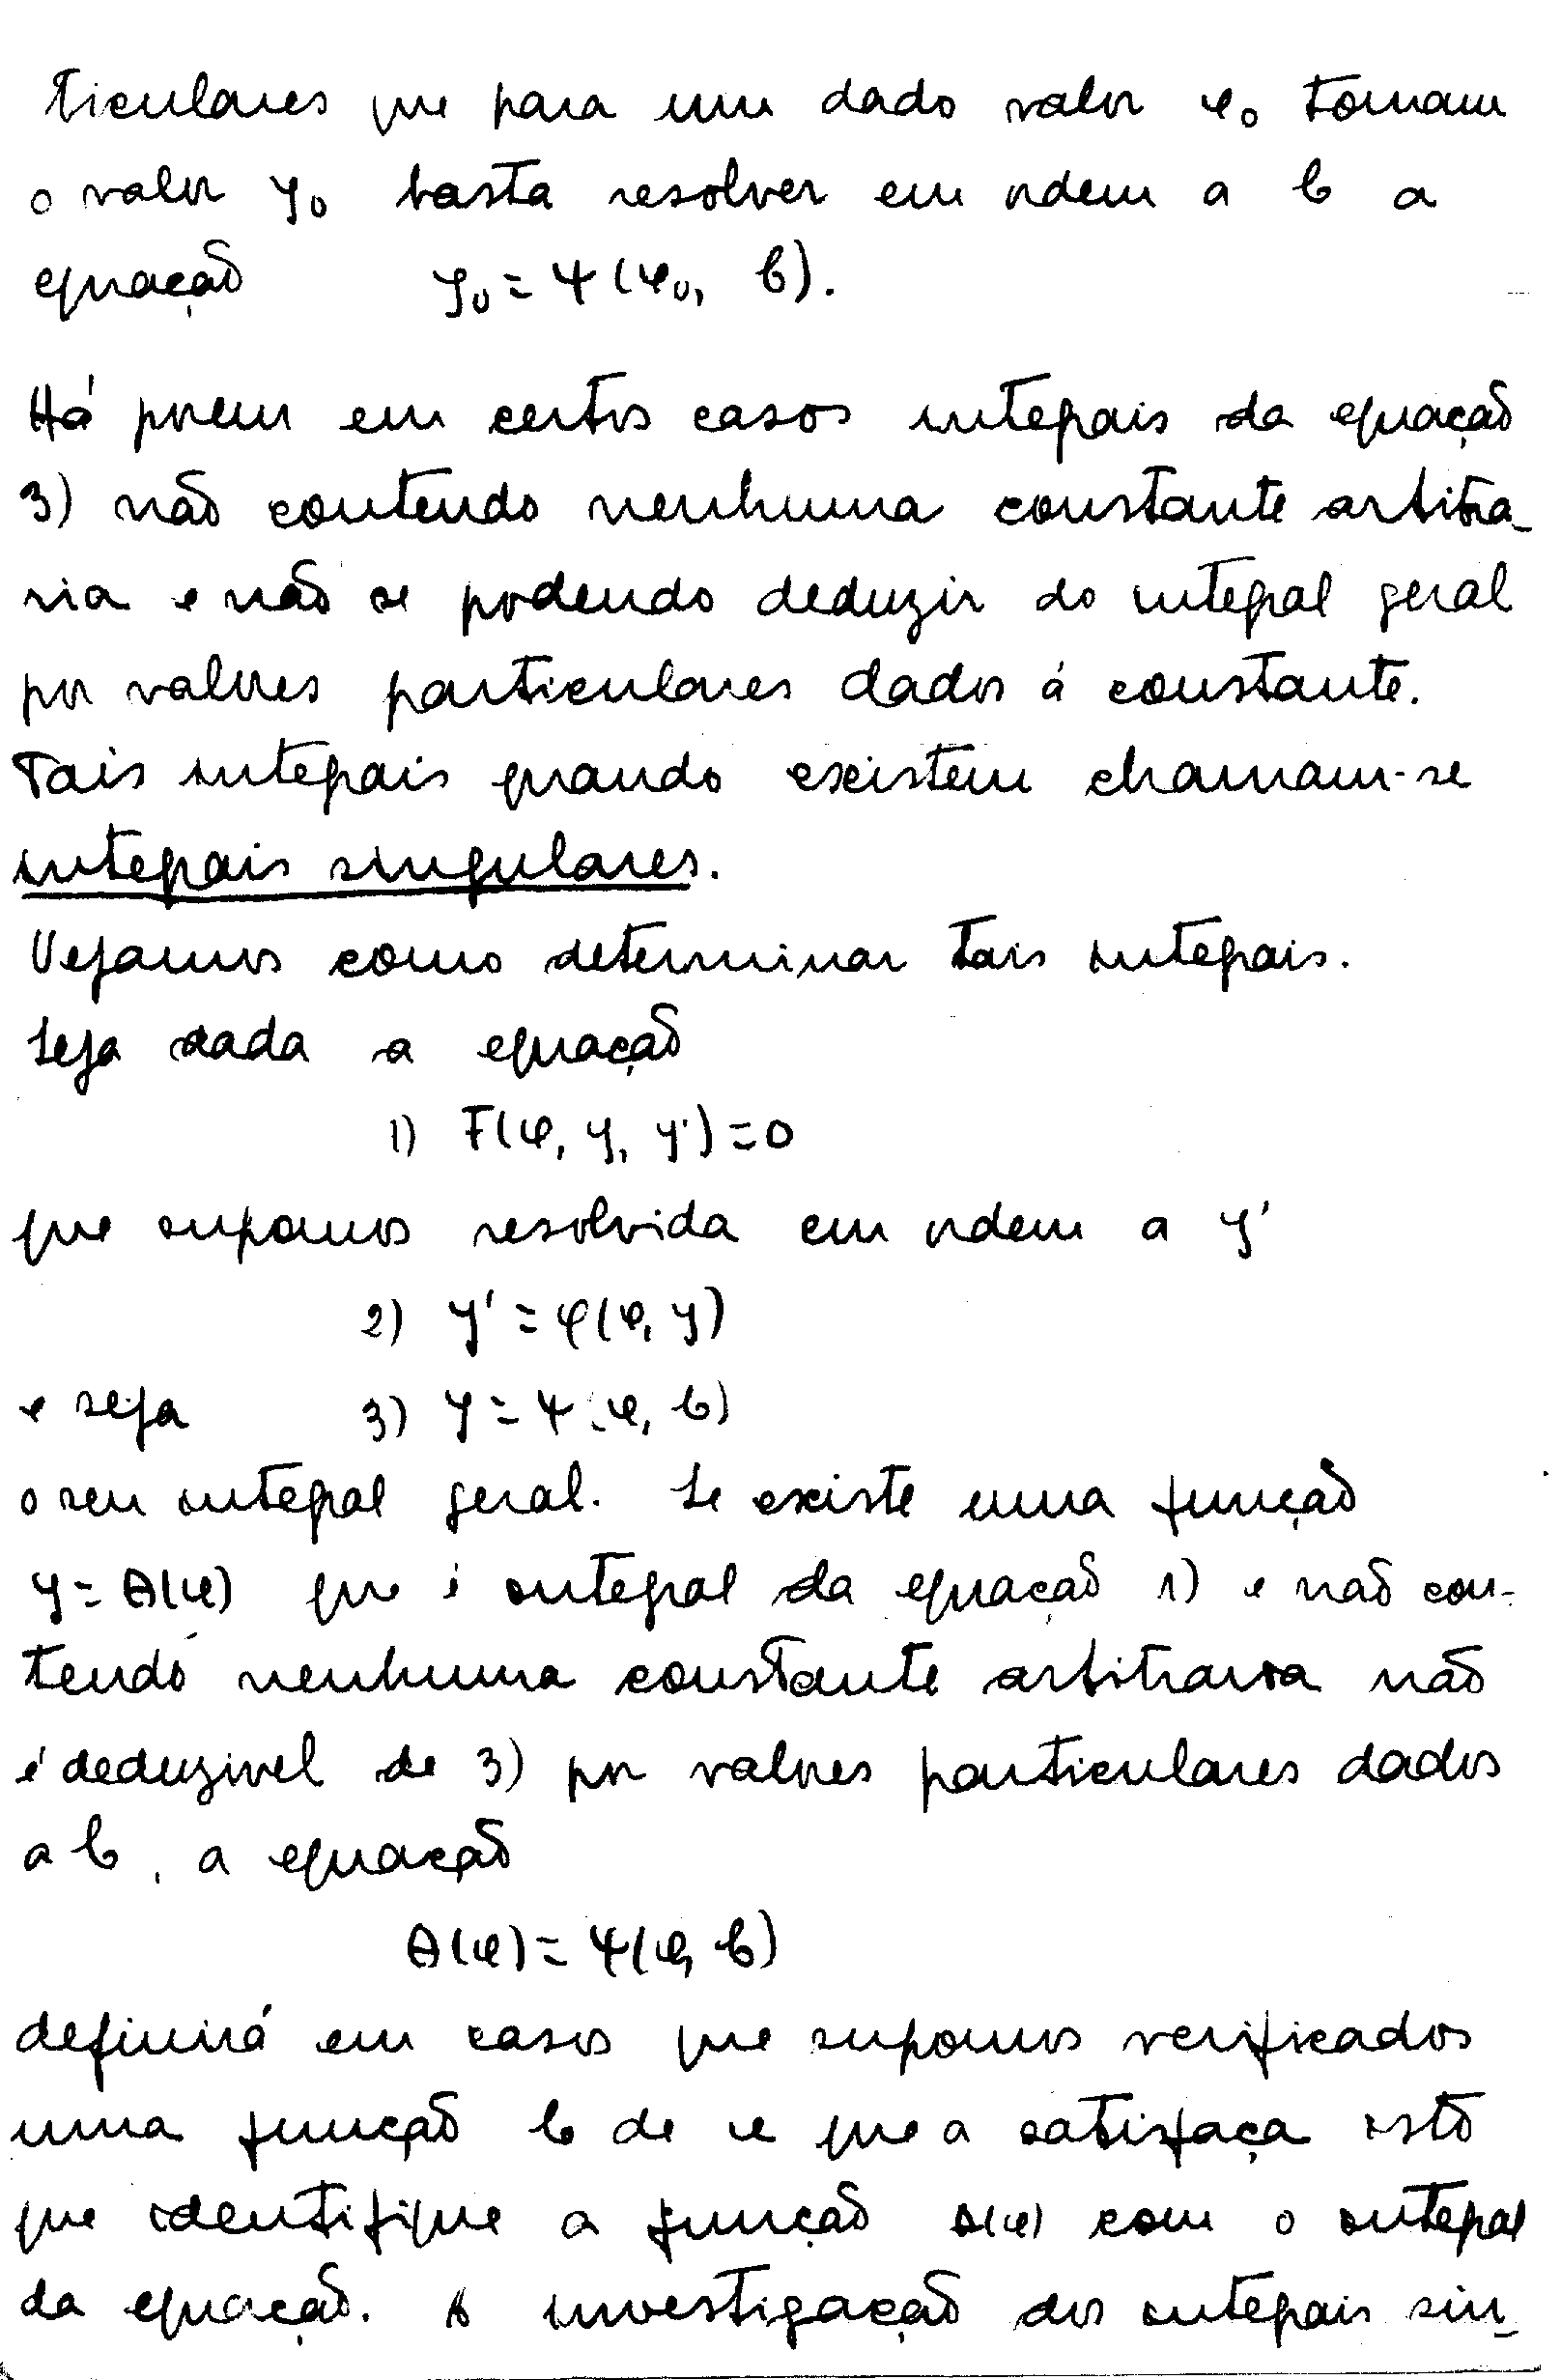 ticulares que para um dado valor x₀ tomam
o valor y₀ basta resolver em ordem a b a
equação y₀ = ψ(x₀, b).
Há porem em certos casos integrais da equação
3) não contendo nenhuma constante arbitra-
ria e não se podendo deduzir do integral geral
por valores particulares dados á constante.
Tais integrais quando existem chamam-se
integrais singulares.
Vejamos como determinar tais integrais.
Seja dada a equação
1) F(x, y, y') = 0
que supomos resolvida em ordem a y'
2) y' = φ(x, y)
e seja 3) y = ψ(x, b)
o seu integral geral. Se existe uma função
y = θ(x) que é integral da equação 1) e não con-
tendo nenhuma constante arbitraria não
é deduzivel de 3) por valores particulares dados
a b, a equação
θ(x) = ψ(x, b)
definirá em casos que supomos verificados
uma função b de x que a satisfaça isto
que identifique a função θ(x) com o integral
da equação. A investigação dos integrais sin-